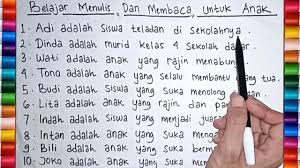 Belajar Menulis Dan Membaca Untuk Anak
1. Adi adalah Siswa teladan di sekolahnya.
2. Dinda adalah murid kelas 4 Sekolah dasar.
3. Wati adalah anak yang rajin menabung
4. Tono adalah anak yang selalu membantu tua.
5. Budi adalah anak yang suka menolong
6. Lita adalah anak yang rajin dan
7. Indah adalah siswa yang menjadi juara
8. Intan adalah anak yang suka
9. Bili adalah anak yang suka
10. Joko adalah anak yang suka